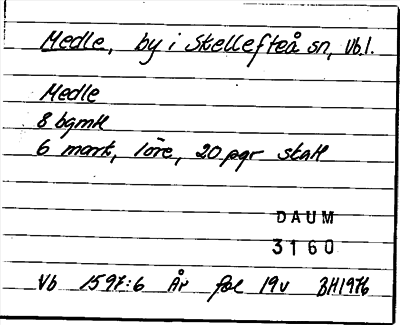 Medle, by i Skellefteå sn, Vb.l.
Medle
8 bgmtl
6 mark, 1öre, 20 pgr skatt
DAUM
3160
Vb 1597:6 År fol 19v BH1976